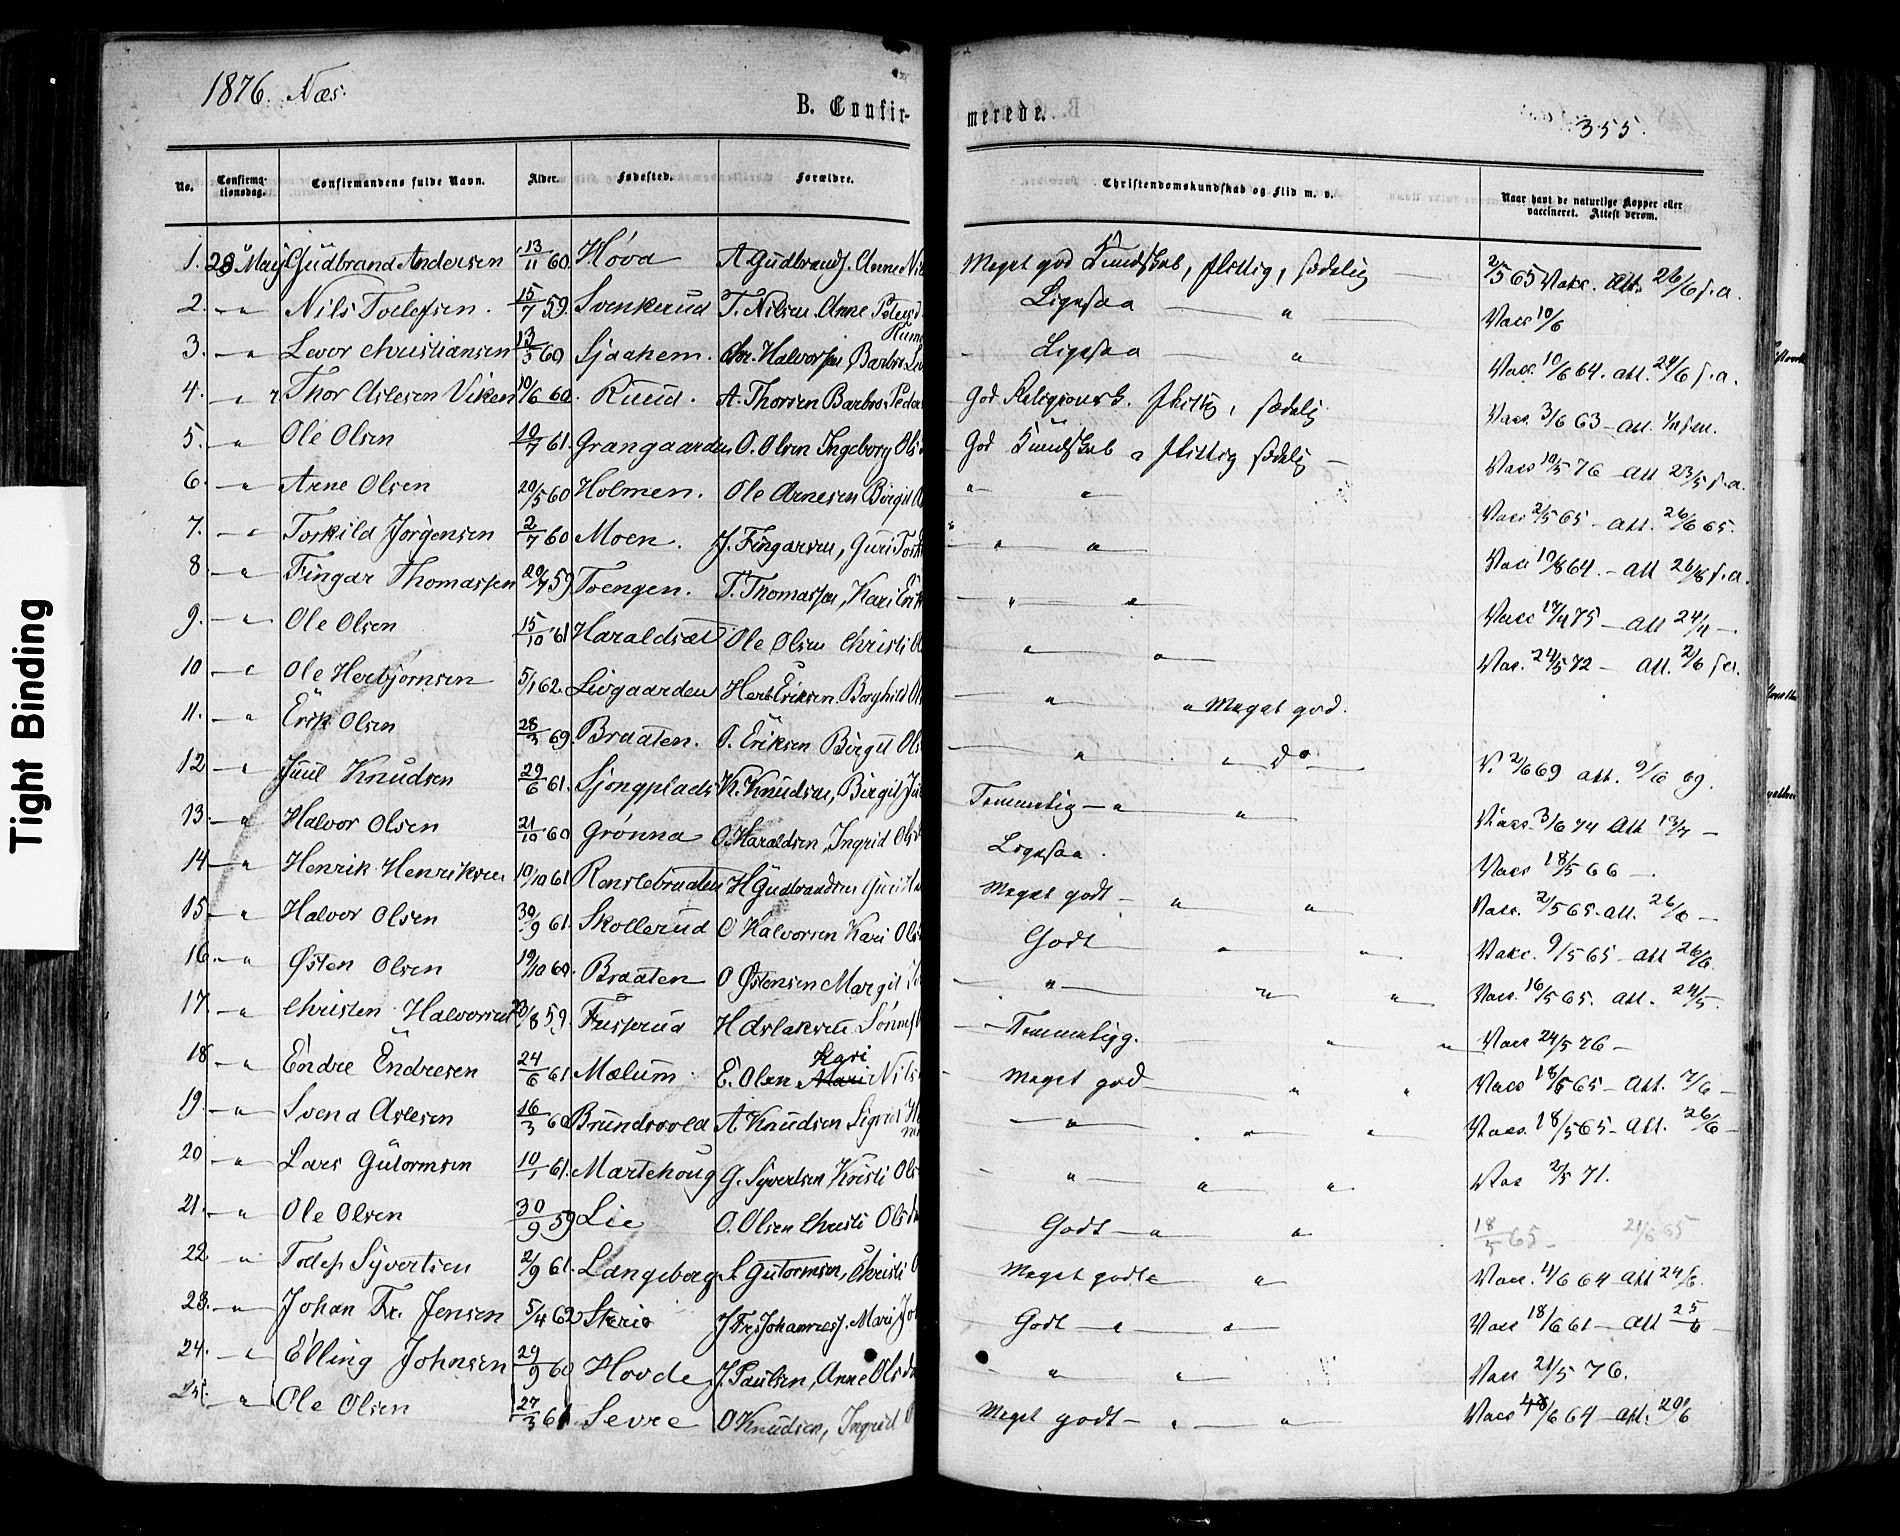 Tight Binding
1876. Næs.
B. Confirmerede.
355.
No. Confirmationsdag. Confirmandens fulde Navn. Alder. Fødested. Forældre. Christendomskundskab og Flid m. v. Naar havt de naturlige Kopper eller vaccineret. Attest derom.
1. 28 May Gudbrand Andersen 13/11 60 Hóva A Gudbrands. Anne Nil Meget god Kundskab, flittig, sædelig 2/5 65 Vakc. Att. 26/6 s.a.
2. " Nils Tollefsen. 15/7 59. Svenkerud T. Nilsen Anne Peters Ligesaa " Vacc 10/6
3. " Levor Christiansen 13/3 60 Sjaahem. Chr. Halvorsen, Barbro Ligesaa " Vacc. 10/6 64. att. 24/6 s.a.
4. " Thor Aslesen Viken 10/6 60. Ruud. A. Thorsen Barbro Peder God Religionsk. flittig, sædelig Vacc. 3/6 63 - att.
5. " Ole Olsen 10/7 61. Grangaarden O. Olsen Ingeborg Ols God Kundskab " flittig sædelig Vacc 19/5 76 - att 23/5 s.a.
6. " Arne Olsen 20/5 60 Holmen. Ole Arnesen Birgit " " Vacc 2/5 65 - att. 26/6 65.
7. " Torkild Jørgensen 2/7 60 Moen. J. Fingarsen, Guri Tork " " Vacc 10/8 64. - att 26/8 s.a.
8. " Fingar Thomassen 20/7 59 Trengen. T. Thomassen, Kari Erik " " Vacc 17/4 75 - att 24/4 -
9. " Ole Olsen 15/10 61 Haraldsæt Ole Olsen Christi " " Vac. 24/5 72 - att. 2/6 s.a.
10 " Ole Herbjørnsen 5/1 62. Livgaarden Herb Eriksen. Borghild " " Meget god.
11. " Erik Olsen 28/3 69. Braaten. O. Eriksen Birgit Ols " " do V. 2/6 69 att. 9/6 69.
12 " Juul Knudsen 29/6 61. Sjongplads K. Knudsen, Birgit Temmelig " " Vacc. 3/6 74 Att 13/7 -
13. " Halvor Olsen 21/10 60 Grønna O. Haraldsen, Ingrid Ols Ligesaa. Vacc 18/5 66 -
14 " Henrik Henriksen 10/10 61 Renslebraaten H Gudbrandsen Guri Meget godt " " Vacc. 2/5 65. att. 26/6 -
15 " Halvor Olsen 30/9 61. Skollerud O Halvorsen Kari Ols Godt " " Vakc. 9/5 65 - att 26/6
16. " Østen Olsen 19/10 60. Braaten O Østensen Margit " " " Vacc. 16/5 65. att. 24/5.
17. " Christen Halvorsen 23/8 59. Fuserud H Aslaksen Sønnef Temmeligg. " " Vacc 24/5 76 -
18 " Endre Endresen 24/6 61. Mælum. E. Olsen Mari Kari Nils Meget god " " Vacc 18/5 65 - Att. 7/6 -
19. " Svend Aslesen 16/3 60 Brundsvold A. Knudsen Sigrid " " " Vacc. 18/5 65 - att. 26/6 -
20 " Lars Gutormsen 10/1 61. Martehoug G. Syvertsen Kristi Ols " " " Vac 2/5 71.
21. " Ole Olsen 30/9 59 Lie O. Olsen Christi Olsda Godt " " 18/5 65 - 21/6 65
22. " Tolef Syvertsen 2/9 61. Langeberg S Gutormsen, Christi Meget godt " " Vacc. 4/6 64 att 24/6.
23. " Johan Fr. Jensen 5/4 62 Skrio J Fr. Johannes. Mari Joh Godt " " Vacc 18/6 61 - att 25/6
24. " Elling Johnsen 29/9 60 Hovde J. Paulsen, Anne Olsda " " Vacc 21/5 76.
25. " Ole Olsen 27/3 61 Sevre O Knudsen, Ingrid Meget godt " " Vacc 18/6 64 - att. 29/6